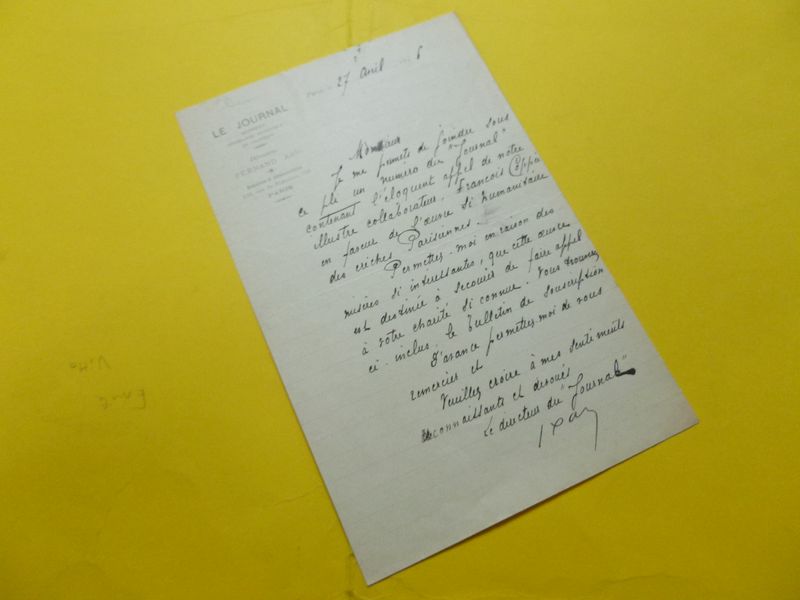 LE JOURNAL
FERNAND
PARIS
27 avril 6
Monsieur
Je me permets de joindre sous
ce pli un numéro du "Journal"
contenant l'éloquent appel de notre
illustre collaborateur, François Coppée
en faveur de l'œuvre si humanitaire
des crèches Parisiennes.
Permettez-moi en raison des
misères si intéressantes, que cette œuvre
est destinée à secourir de faire appel
à votre charité si connue. Vous trouverez
ci-inclus le bulletin de souscription
D'avance permettez-moi de vous
remercier et
Veuillez croire à mes sentiments
reconnaissants et dévoués
Le directeur du "Journal"